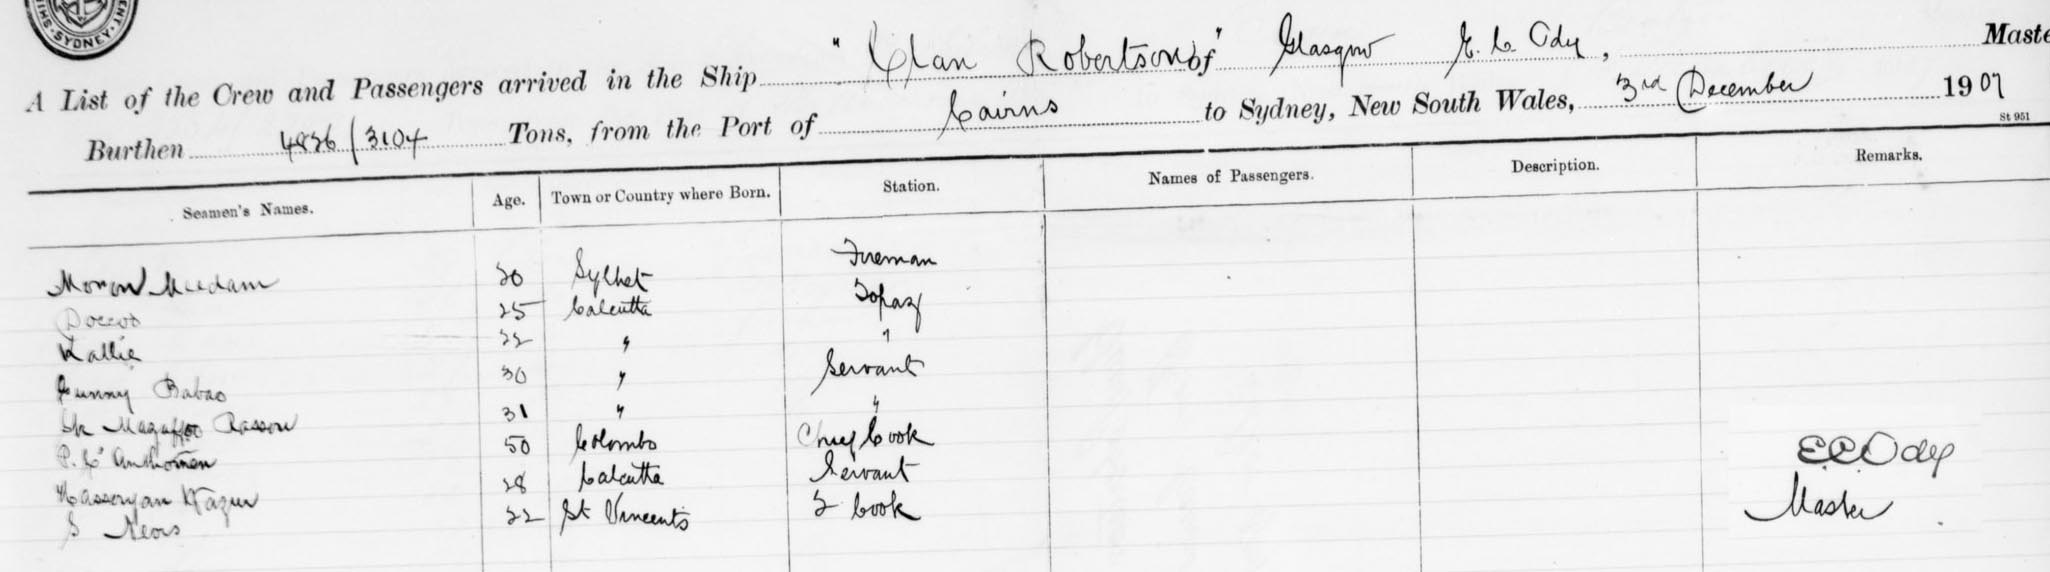 SYDNEY
A List of the Crew and Passengers arrived in the Ship "Clan Robertson" of Glasgow E. C. Ody, Maste
Burthen 4826/3104 Tons, from the Port of Cairns to Sydney, New South Wales, 3rd December 1907
St 951
Seamen's Names. Age. Town or Country where Born. Station. Names of Passengers. Description. Remarks.
20 Sylhet Fireman
25 Calcutta Topaz
Kallie 22 " "
Babao 30 " Servant
31 " "
50 Colombo Chief Cook
28 Calcutta Servant
S 22 St Vincents 2 Cook
E C Ody
Master